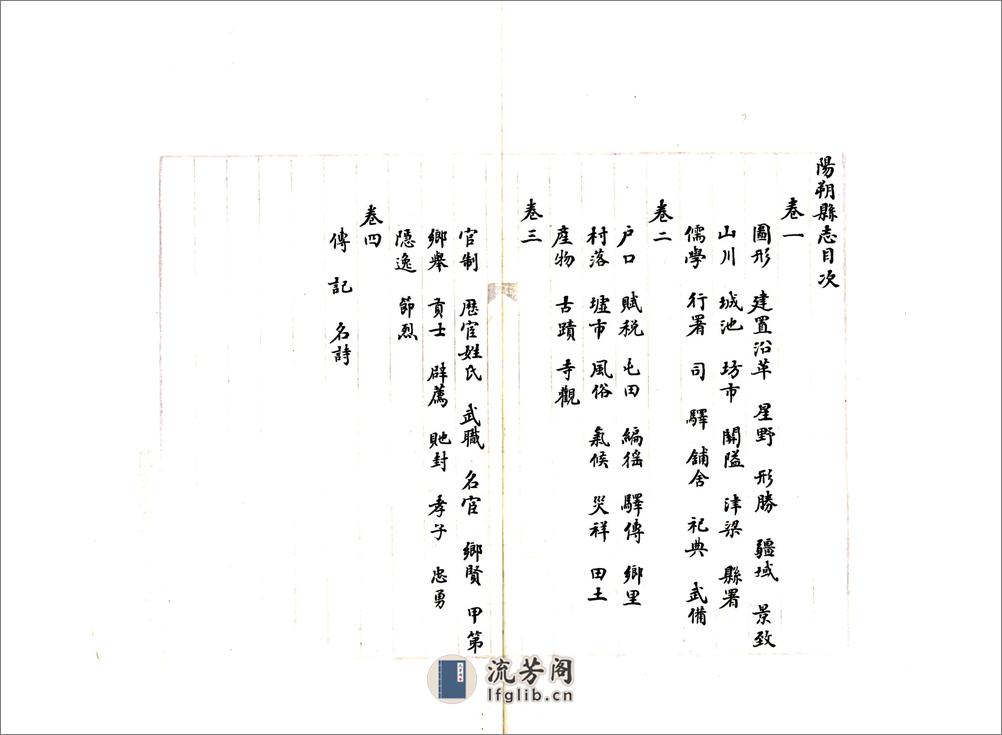 陽朔縣志目次
卷一
圖形 建置沿革 星野 形勝 疆域 景致
山川 城池 坊市 關隘 津梁 縣署
儒學 行署 司 驛 鋪舍 祀典 武備
卷二
户口 賦税 屯田 編徭 驛傳 鄉里
村落 墟市 風俗 氣候 災祥 田土
產物 古蹟 寺觀
卷三
官制 歷官姓氏 武職 名宦 鄉賢 甲第
鄉舉 貢士 辟薦 貤封 孝子 忠勇
隱逸 節烈
卷四
傳 記 名詩
流芳阁
lfglib.cn